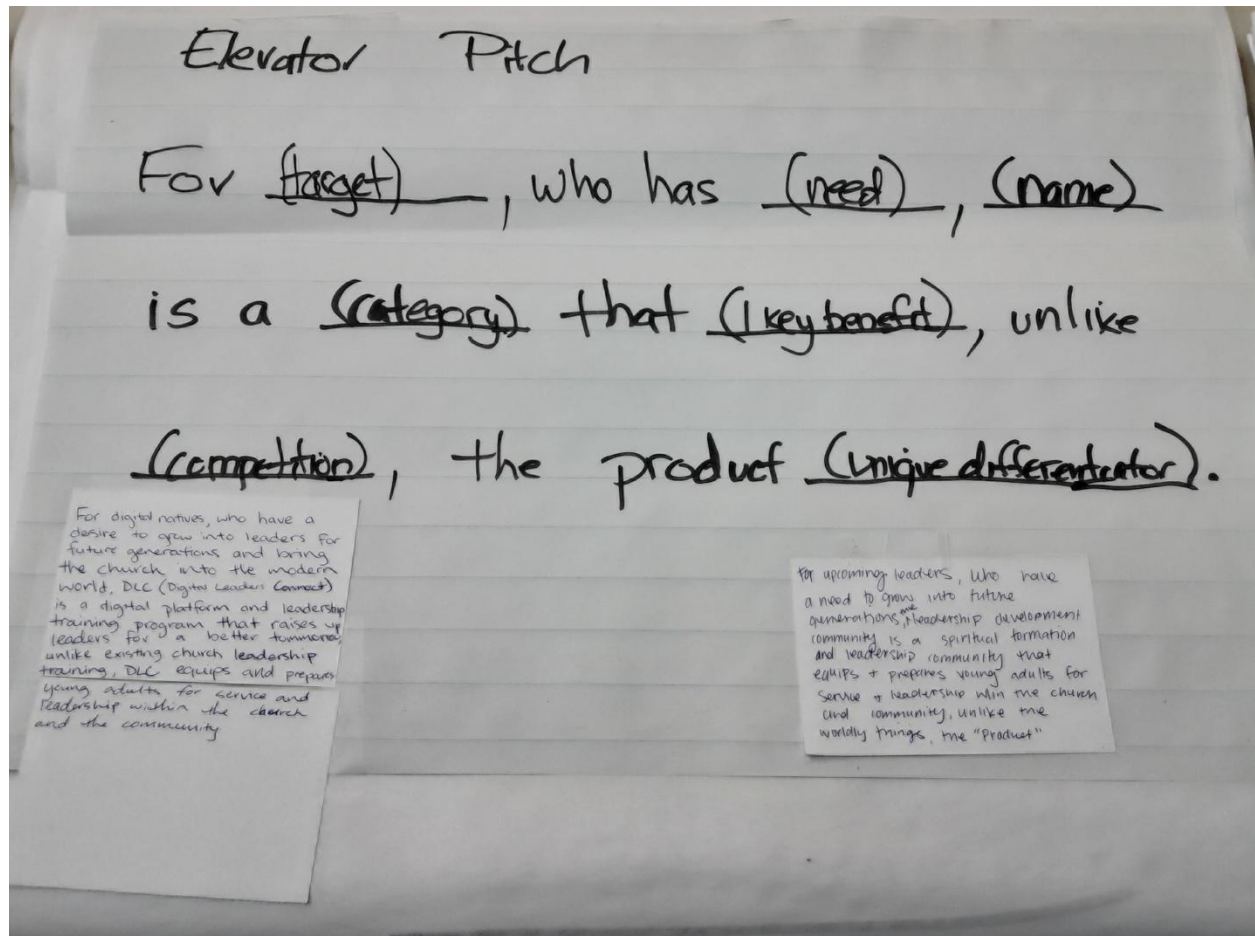 Elevator Pitch
For (target), who has (need), (name)
is a (category) that (1 key benefit), unlike
(competition), the product (unique differentiator).
For digital natives, who have a
desire to grow into leaders for
future generations and bring
the church into the modern
world, DLC (Digital Leaders Connect)
is a digital platform and leadership
training program that raises up
leaders for a better tommorow,
unlike existing church leadership
training, DLC equips and prepares
young adults for service and
leadership within the church
and the community
For upcoming leaders, who have
a need to grow into future
generations, the leadership development
community is a spiritual formation
and leadership community that
equips + prepares young adults for
service + leadership w/in the church
and community, unlike the
worldly things, the "Product"